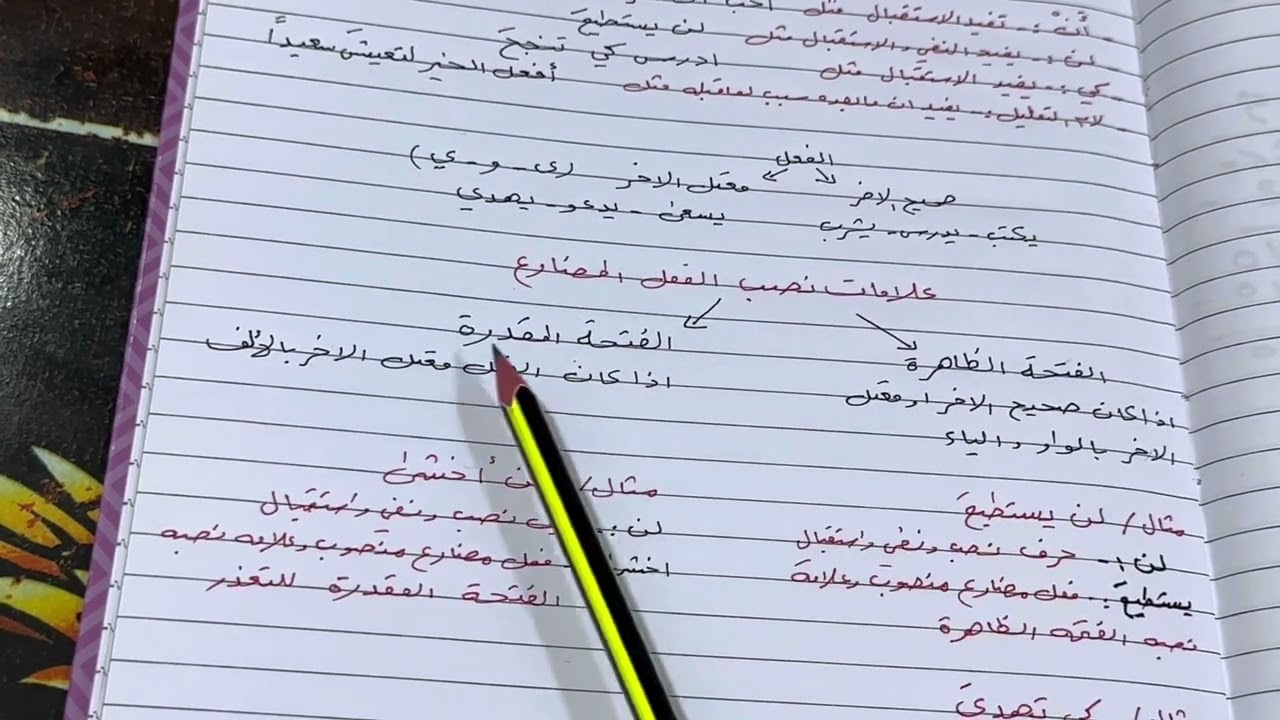 - أنْ :- تفيد الاستقبال مثل
- لن :- يفيد النفي والاستقبال مثل لن يستطيعَ
- كي :- يفيد الاستقبال مثل ادرس كي تنجحَ
- لام التعليل :- يفيد ان مابعده سبب لماقبله مثل أفعل الخير لتعيشَ سعيداً
الفعل
صحيح الاخر
معتل الاخر (ى - و - ي)
يكتب - يدرس - يشرب
يسعى - يدعو - يهدي
علامات نصب الفعل المضارع
الفتحة الظاهرة
اذا كان صحيح الاخر او معتل
الاخر بالواو والياء
مثال / لن يستطيعَ
لن :- حرف نصب ونفي واستقبال
يستطيعَ :- فعل مضارع منصوب وعلامة
نصبه الفتحة الظاهرة
الفتحة المقدرة
اذا كان معتل الاخر بالألف
مثال / أخشى
لن :- نصب ونفي واستقبال
اخشى فعل مضارع منصوب وعلامه نصبه
الفتحة المقدرة للتعذر
مثال / كي تهديَ